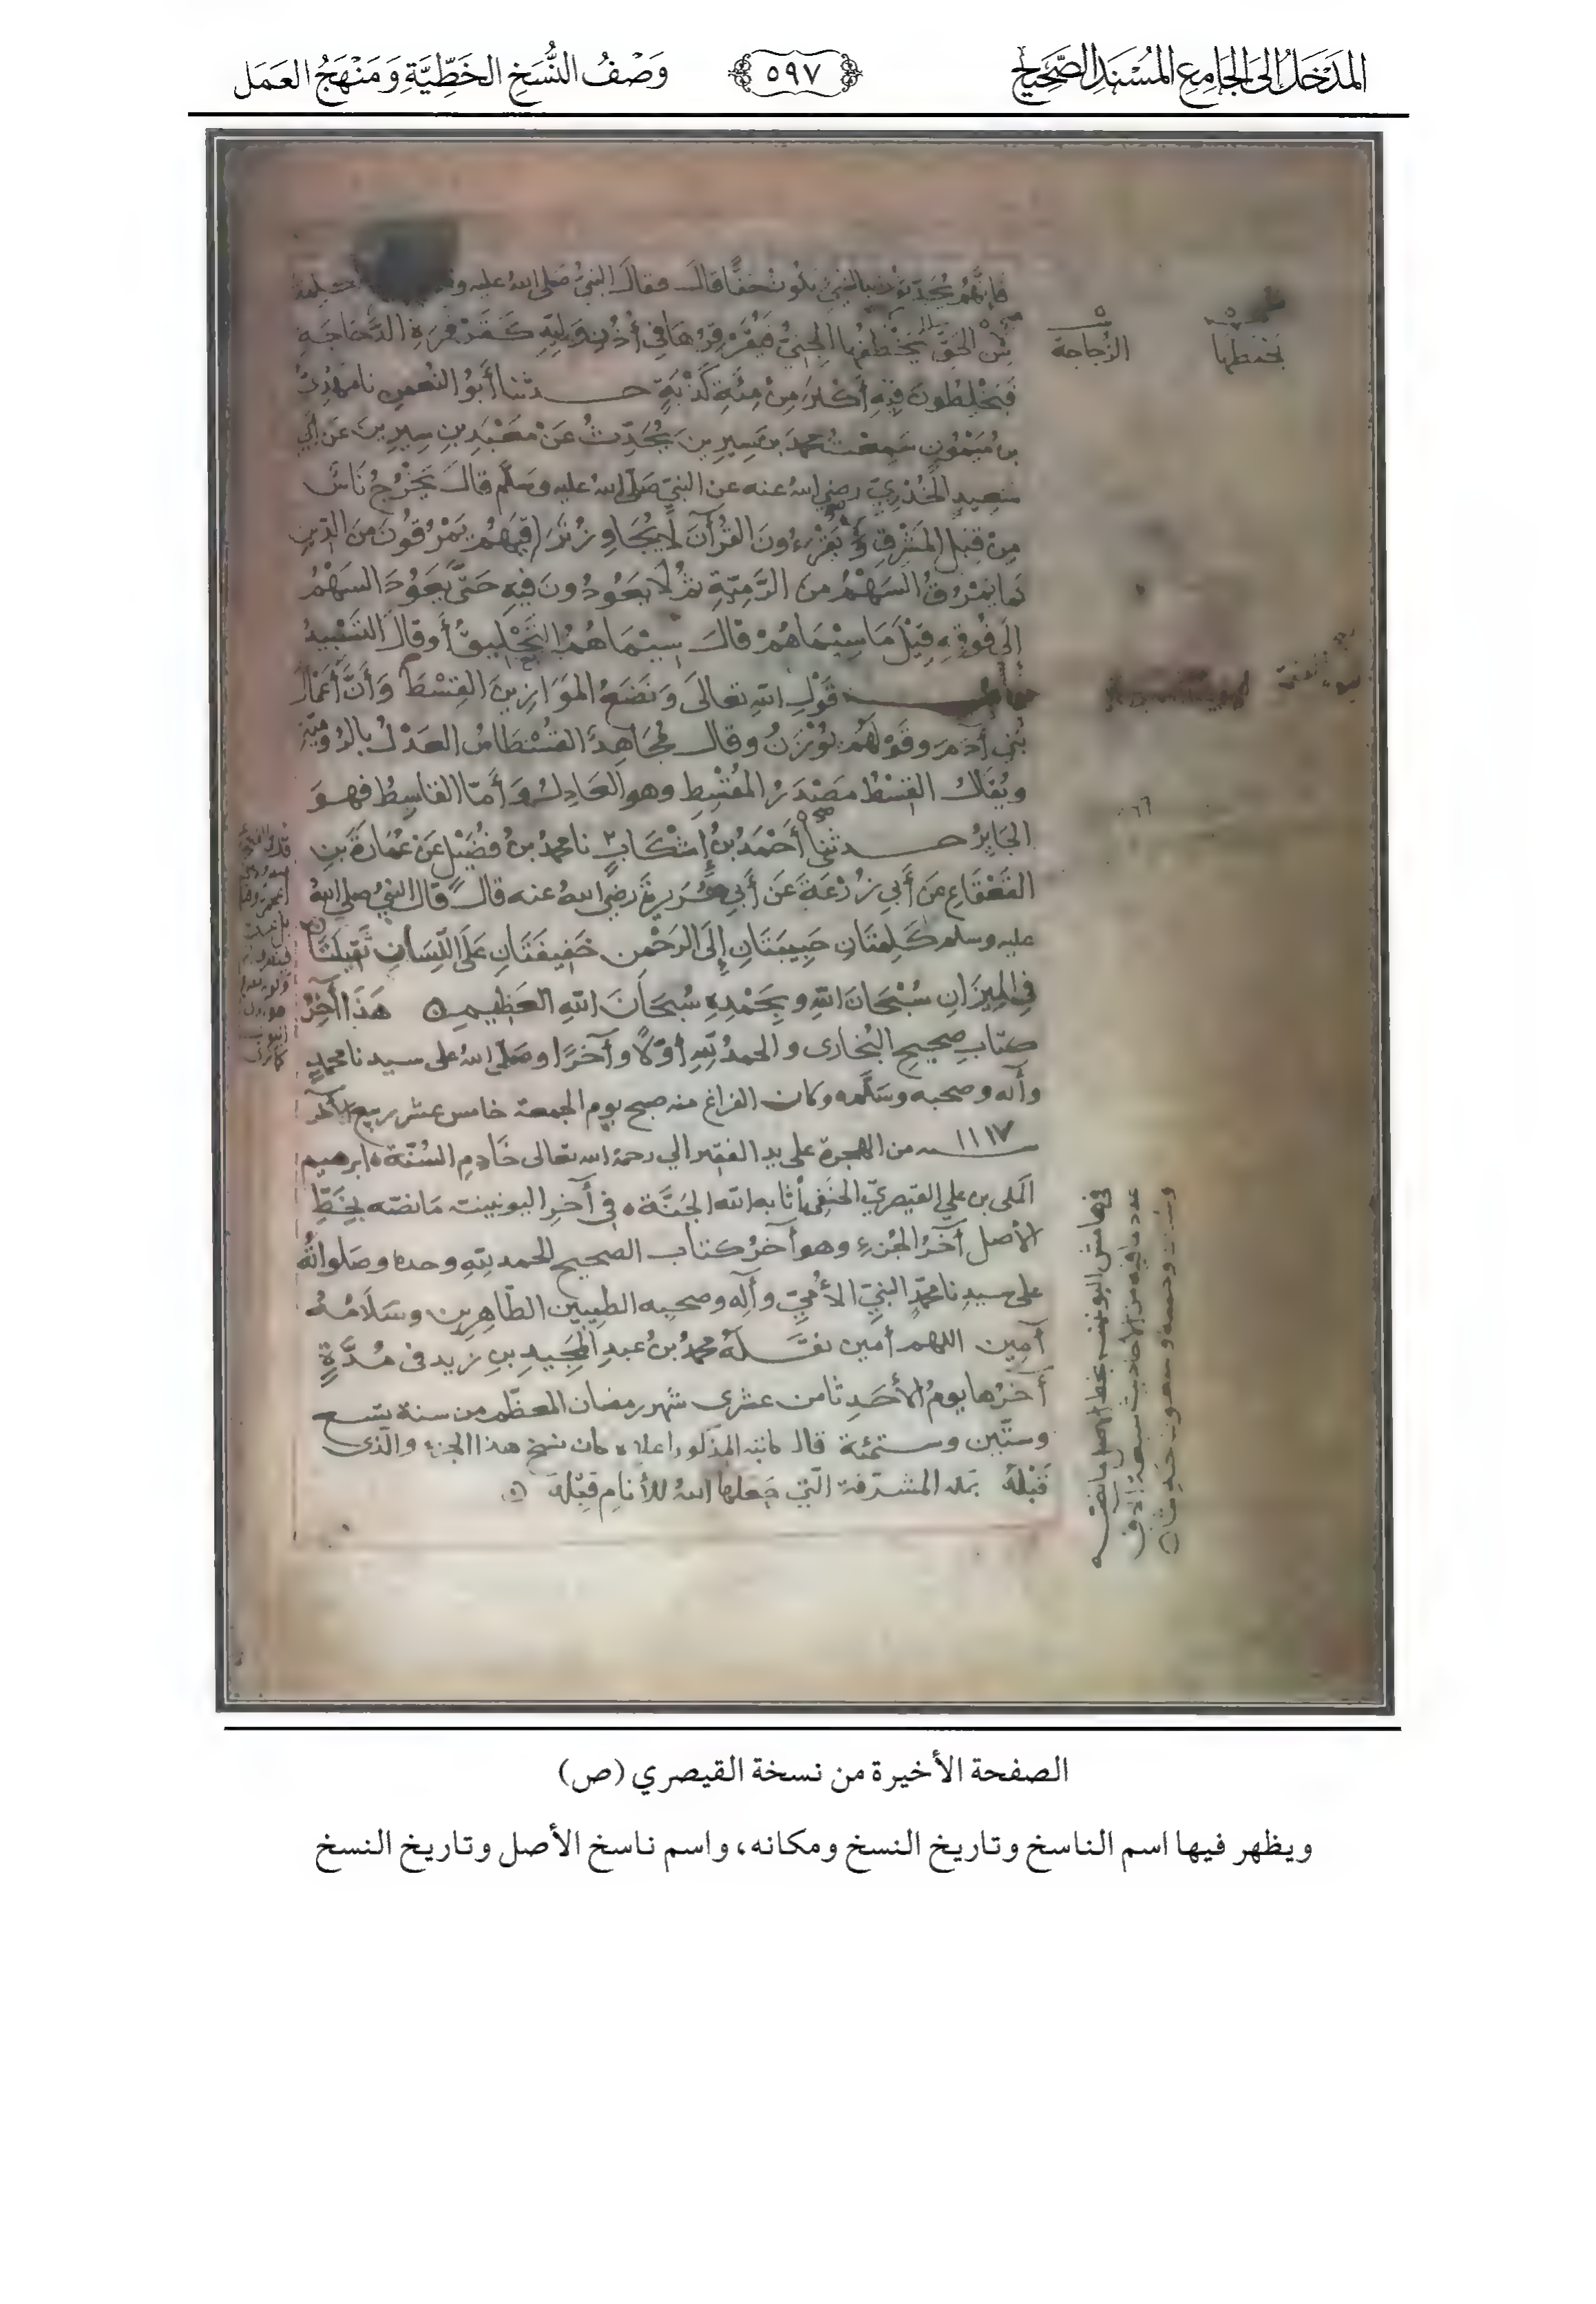 المدخل إلى الجامع المسند الصحيح
٥٩٧
وصف النسخ الخطية ومنهج العمل
فإنهم يحدثون بالشيء يكون حقا قال فقال النبي صلى الله عليه
من الحق يخطفها الجني فيقرقرها في أذن وليه كقرقرة الدجاجة
الزجاجة
فيخلطون فيه أكثر من مئة كذبة حدثنا أبو النعمن نا مهدي
بن ميمون سمعت محمد بن سيرين يحدث عن معبد بن سيرين عن أبي
سعيد الخدري رضي الله عنه عن النبي صلى الله عليه وسلم قال يخرج ناس
من قبل المشرق ويقرءون القرآن لا يجاوز تراقيهم يمرقون من الدين
كما يمرق السهم من الرمية ثم لا يعودون فيه حتى يعود السهم
إلى فوقه قيل ما سيماهم قال سيماهم التحليق أو قال التسبيد
قول الله تعالى ونضع الموازين القسط وأن أعمال
بني آدم وقولهم يوزن وقال مجاهد القسطاس العدل بالرومية
ويقال القسط مصدر المقسط وهو العادل وأما القاسط فهو
الجاير حدثني أحمد بن إشكاب نا محمد بن فضيل عن عمارة بن
القعقاع عن أبي زرعة عن أبي هريرة رضي الله عنه قال قال النبي صلى الله
عليه وسلم كلمتان حبيبتان إلى الرحمن خفيفتان على اللسان ثقيلتان
في الميزان سبحان الله وبحمده سبحان الله العظيم هذا آخر
كتاب صحيح البخاري والحمد لله أولا وآخرا وصلى الله على سيدنا محمد
وآله وصحبه وسلم وكان الفراغ منه صبح يوم الجمعة خامس عشر ربيع الآخر
١١١٧ من الهجرة على يد الفقير إلى رحمة الله تعالى خادم السنة إبرهيم
المكي بن علي القيصري الحنفي أثابه الله الجنة في آخر اليونينية ما نصه بخط
الأصل آخر الجزء وهو آخر كتاب الصحيح الحمد لله وحده وصلوات الله
على سيدنا محمد النبي الأمي وآله وصحبه الطيبين الطاهرين وسلامه
آمين اللهم آمين نقله محمد بن عبد المجيد بن زيد في مدة
آخرها يوم الأحد ثامن عشري شهر رمضان المعظم من سنة تسع
وستين وستمئة قال كاتبه المذكور أعلاه كان نسخ هذا الجزء والذي
قبله بمكة المشرفة التي جعلها الله للأنام قبلة
في هامش اليونينية بخط الأصل ما نصه
عدد ما فيه من الأحاديث سبعة آلاف
وسبعون حديثا
الصفحة الأخيرة من نسخة القيصري (ص)
ويظهر فيها اسم الناسخ وتاريخ النسخ ومكانه، واسم ناسخ الأصل وتاريخ النسخ